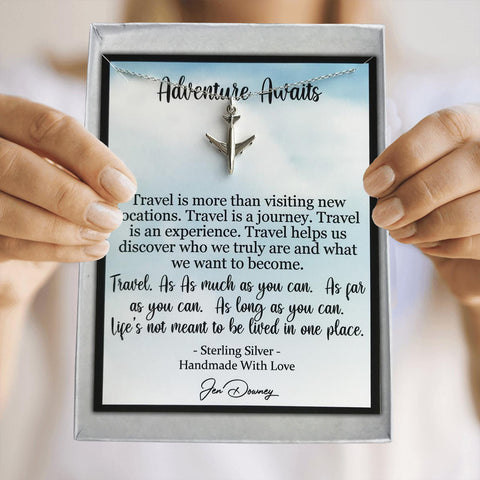 Adventure Awaits
Travel is more than visiting new
locations. Travel is a journey. Travel
is an experience. Travel helps us
discover who we truly are and what
we want to become.
Travel. As As much as you can. As far
as you can. As long as you can.
Life's not meant to be lived in one place.
- Sterling Silver -
Handmade With Love
Jen Downey